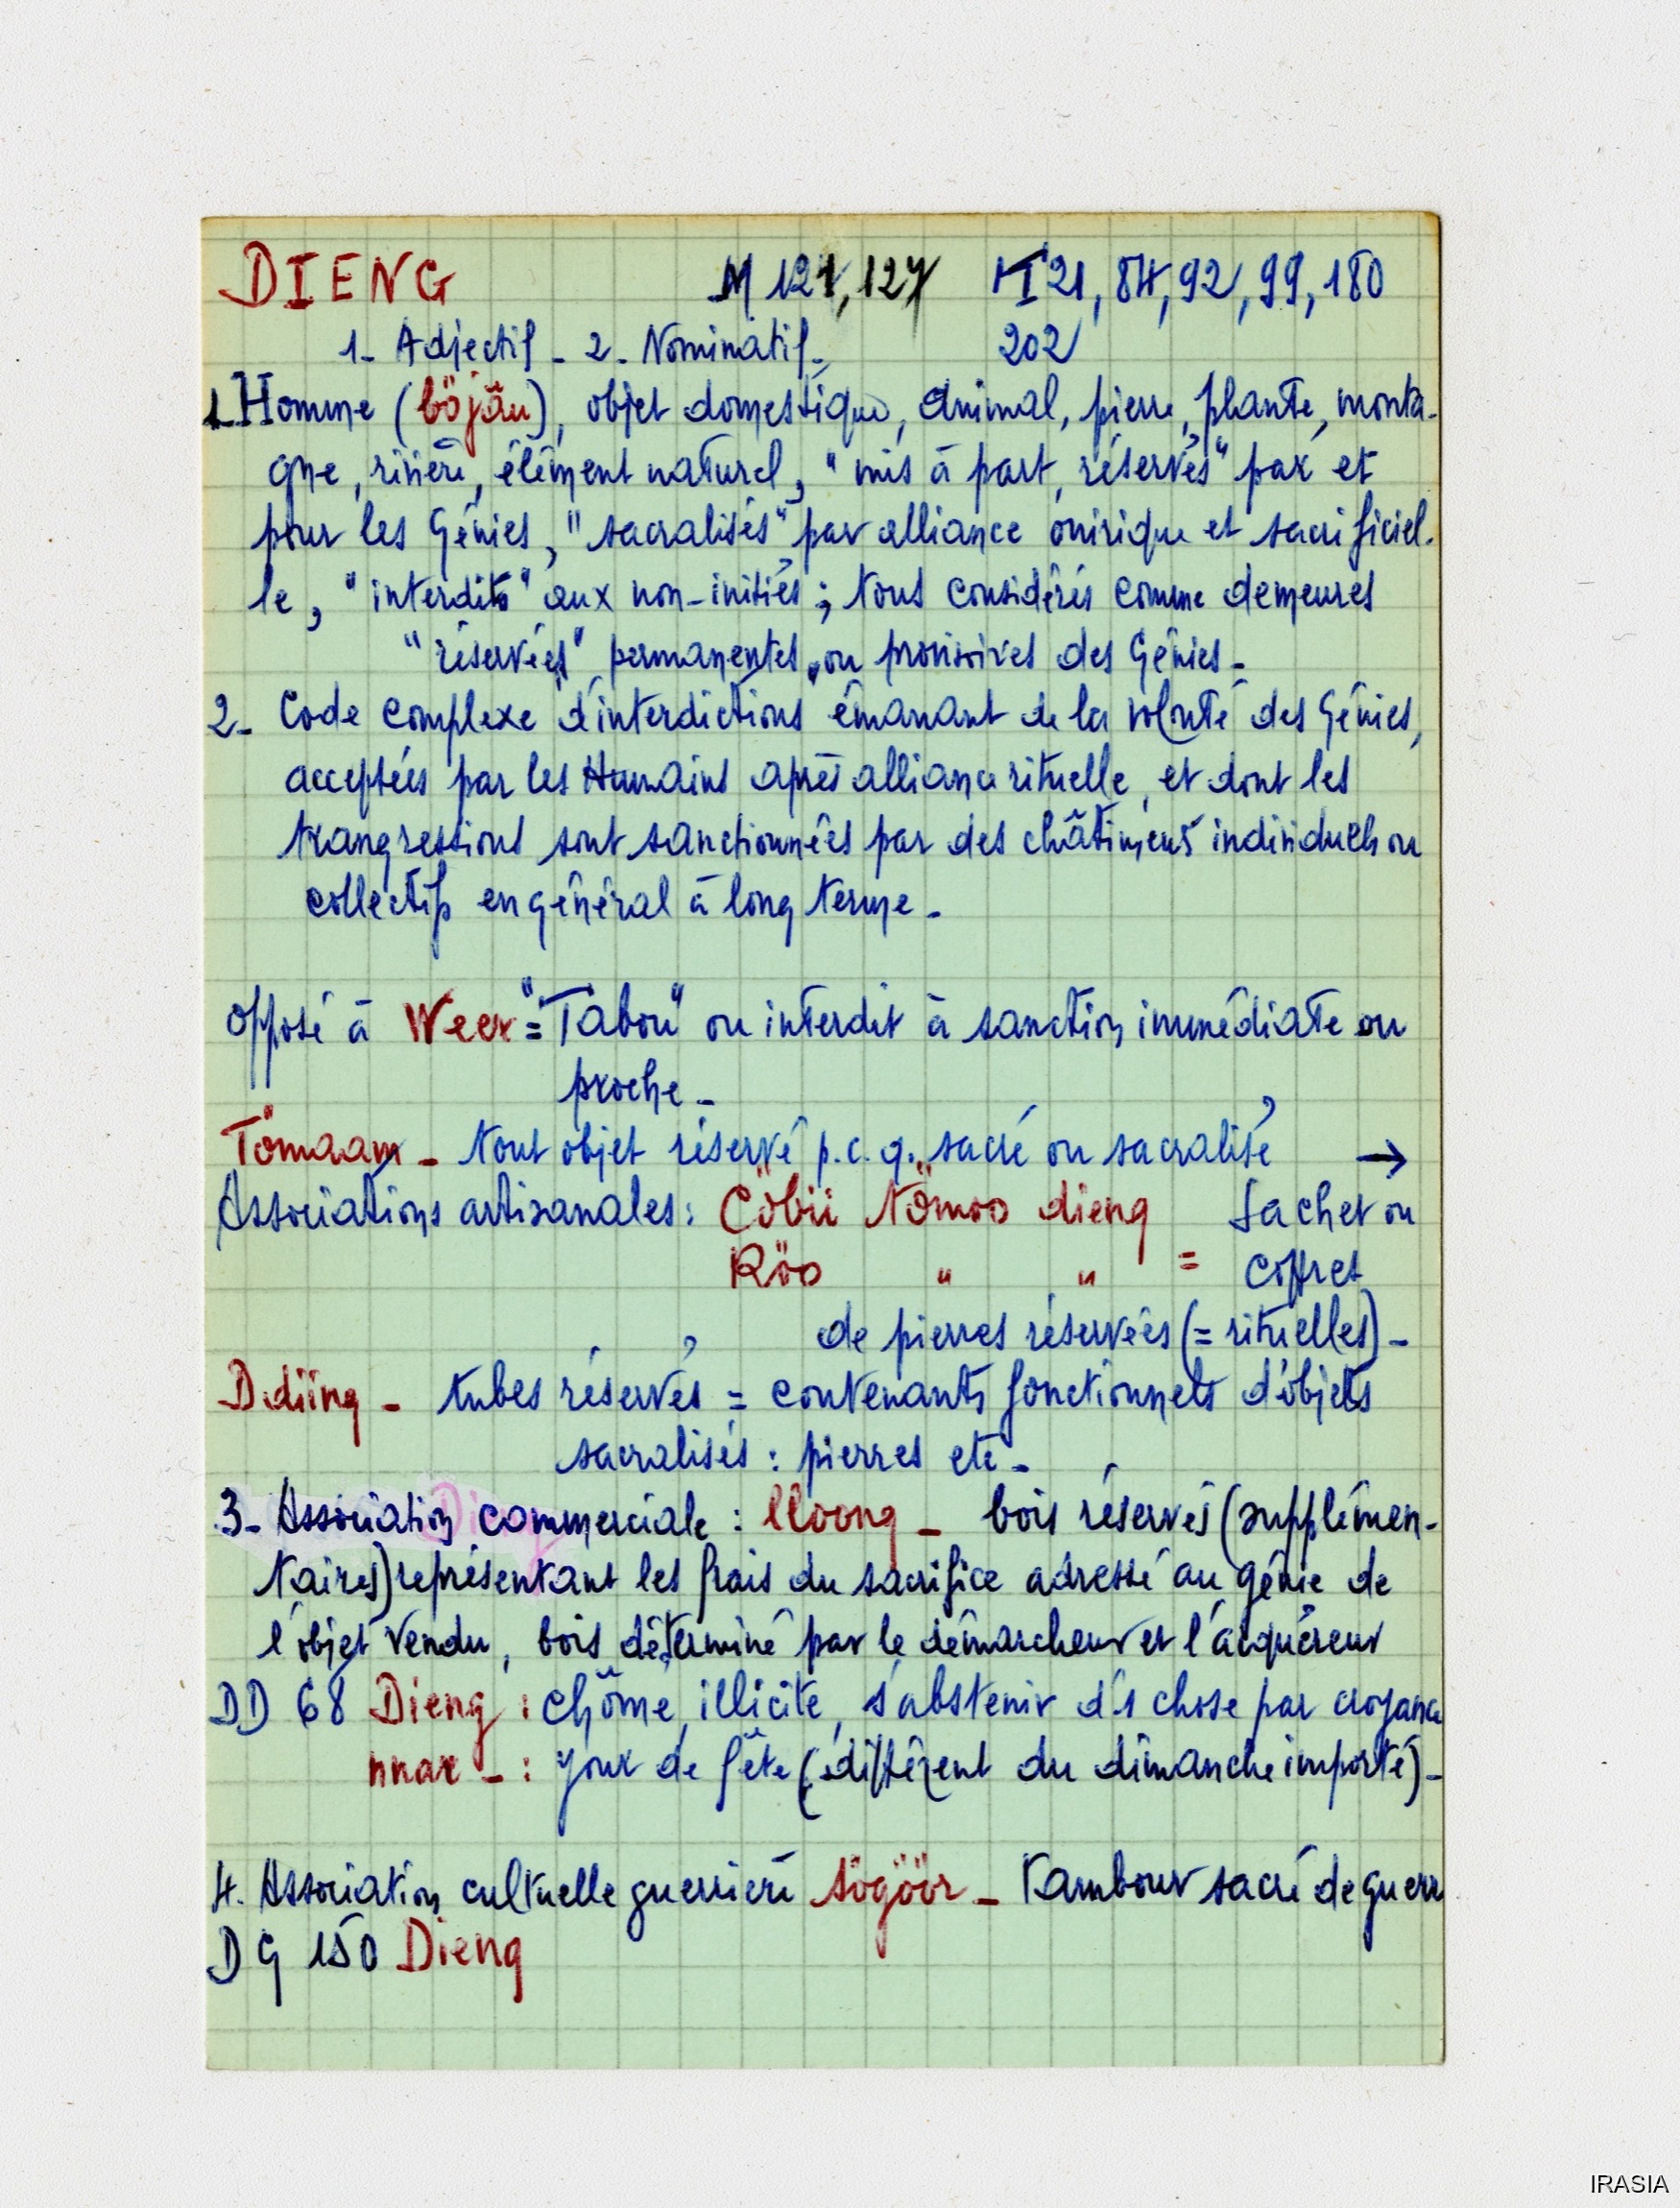 DIENG M 121, 127 MI 21, 84, 92, 99, 180
1- Adjectif - 2- Nominatif - 202
1. Homme (böjâu), objet domestique, animal, pierre, plante, monta-
gne, rivière, élément naturel, "mis à part, réservés" par et
pour les Génies, "sacralisés" par alliance onirique et sacrificiel-
le, "interdits" aux non-initiés ; tous considérés comme demeures
"réservées" permanentes ou provisoires des Génies -
2- Code complexe d'interdictions émanant de la volonté des Génies,
acceptées par les Humains après alliance rituelle, et dont les
trangressions sont sanctionnées par des châtiments individuels ou
collectifs en général à long terme -
Opposé à Weer = "Tabou" ou interdit à sanction immédiate ou
proche -
Tömaam - tout objet réservé p.c.q. sacré ou sacralisé →
Associations artisanales : Cöbii tömoo dieng Sachet ou
Röo " " = coffret
de pierres réservées (= rituelles) -
D. diing - tubes réservés = contenants fonctionnels d'objets
sacralisés : pierres etc -
3- Association commerciale : lloong - bois réservés (supplémen-
taires) représentant les frais du sacrifice adressé au génie de
l'objet vendu, bois déterminé par le démarcheur et l'acquéreur
DD 68 Dieng : chômé, illicite, s'abstenir d'1 chose par croyance
nnar - : jour de fête (différent du dimanche importé) -
4. Association cultuelle guerrière sögöör - Tambour sacré de guerre
DG 150 Dieng
IRASIA